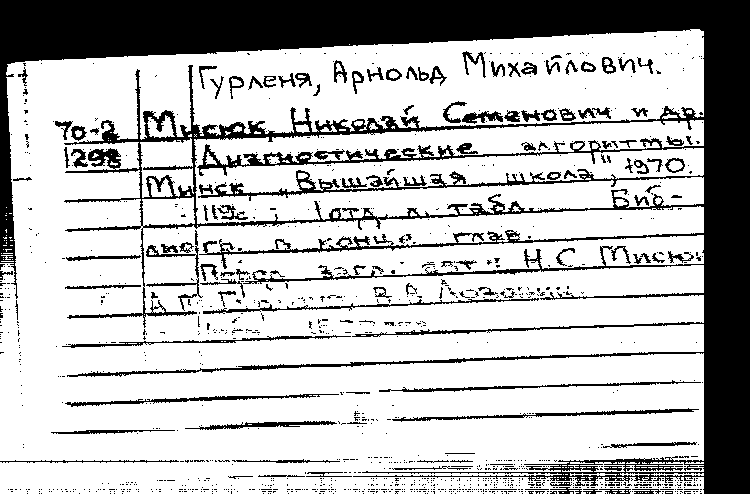 Гурленя, Арнольд Михайлович.
70-2 Мисюк, Николай Семенович и др.
1298 Диагностические алгоритмы.
Минск, „Вышэйшая школа", 1970.
119с.; 1отд. л. табл. Биб-
лиогр. в конце глав.
Перед загл. авт.: Н.С. Мисюк
А.М. Гурленя, В.В. Лозовик.